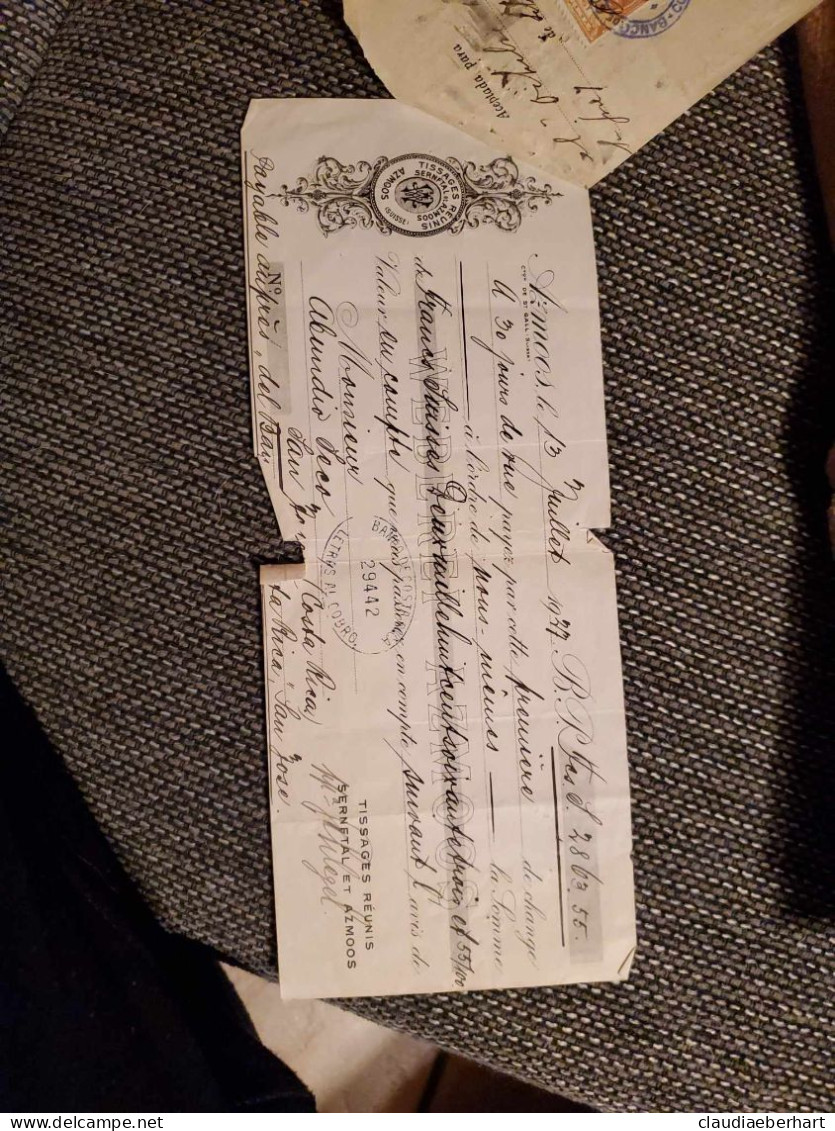 Aceptada para
TISSAGES REUNIS
SERNFTAL & AZMOOS
(SUISSE)
AZMOOS
Azmoos, le 13 Juillet 1927. B.P. Frs. S. 2863.55.
CTON DE ST GALL (SUISSE)
A 30 jours de vue payez par cette première de change
à l'ordre de nous-mêmes la Somme
de Francs Suisses Deux mille huit cent soixante trois et 55/100
WEBEREI AZMOOS
Valeur en compte que vous passerez en compte suivant l'avis de
Monsieur
Abundio Seco
San José (Costa Rica)
BANCO DE COSTA RICA
29442
LETRAS AL COBRO
TISSAGES RÉUNIS
SERNFTAL ET AZMOOS
No
Payable auprès del Ban ta Rica, San José.
claudiaeberhart